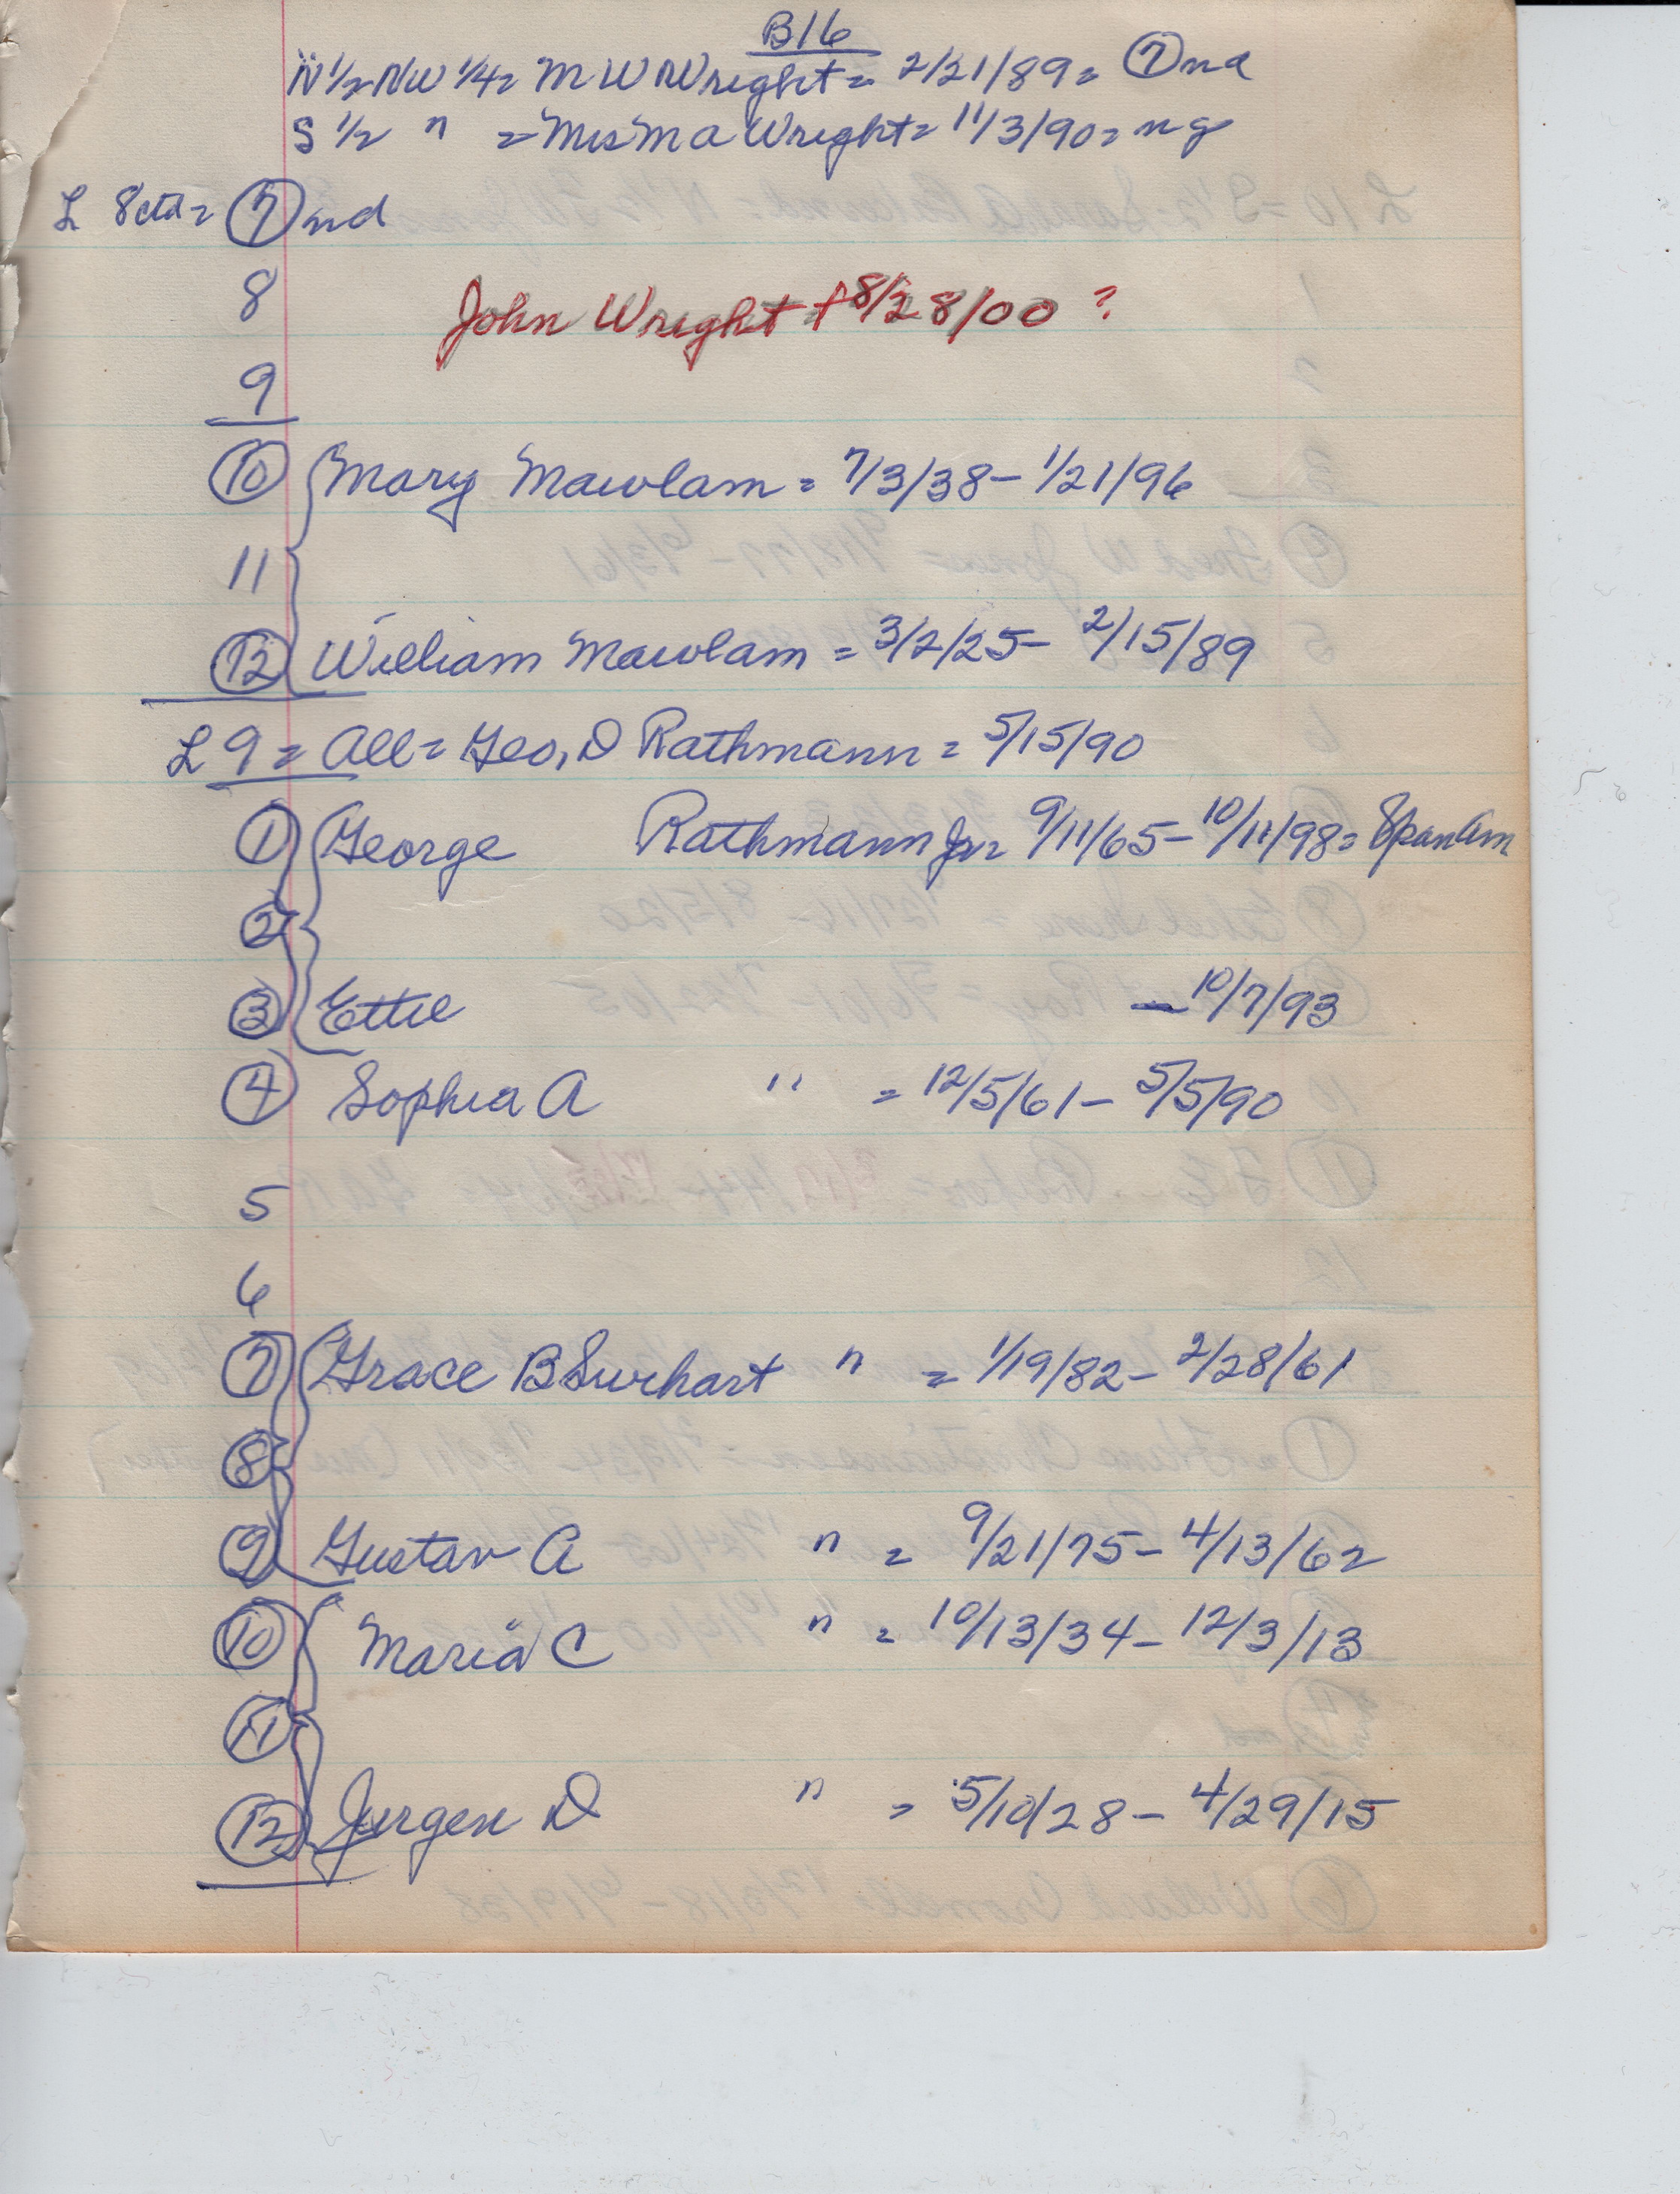 B16
N 1/2 NW 1/4 = M W Wright = 2/21/89 = 7 nd
S 1/2 " = Mrs M A Wright = 11/3/90 = ng
L 8 ctd = 7 nd
8 John Wright + 8/28/00 ?
9
10 Mary Mawlam = 7/3/38 - 1/21/96
11
12 William Mawlam = 3/2/25 - 2/15/89
L 9 = All = Geo, D Rathmann = 5/15/90
1 George Rathmann Jr = 9/11/65 - 10/11/98 = SpanAm
2
3 Ettie - 10/7/93
4 Sophia A " = 12/5/61 - 5/5/90
5
6
7 Grace B " = 1/19/82 - 2/28/61
8
9 Gustav A " = 9/21/75 - 4/13/62
10 Maria C " = 10/13/34 - 12/3/13
11
12 Jurgen D " = 5/10/28 - 4/29/15